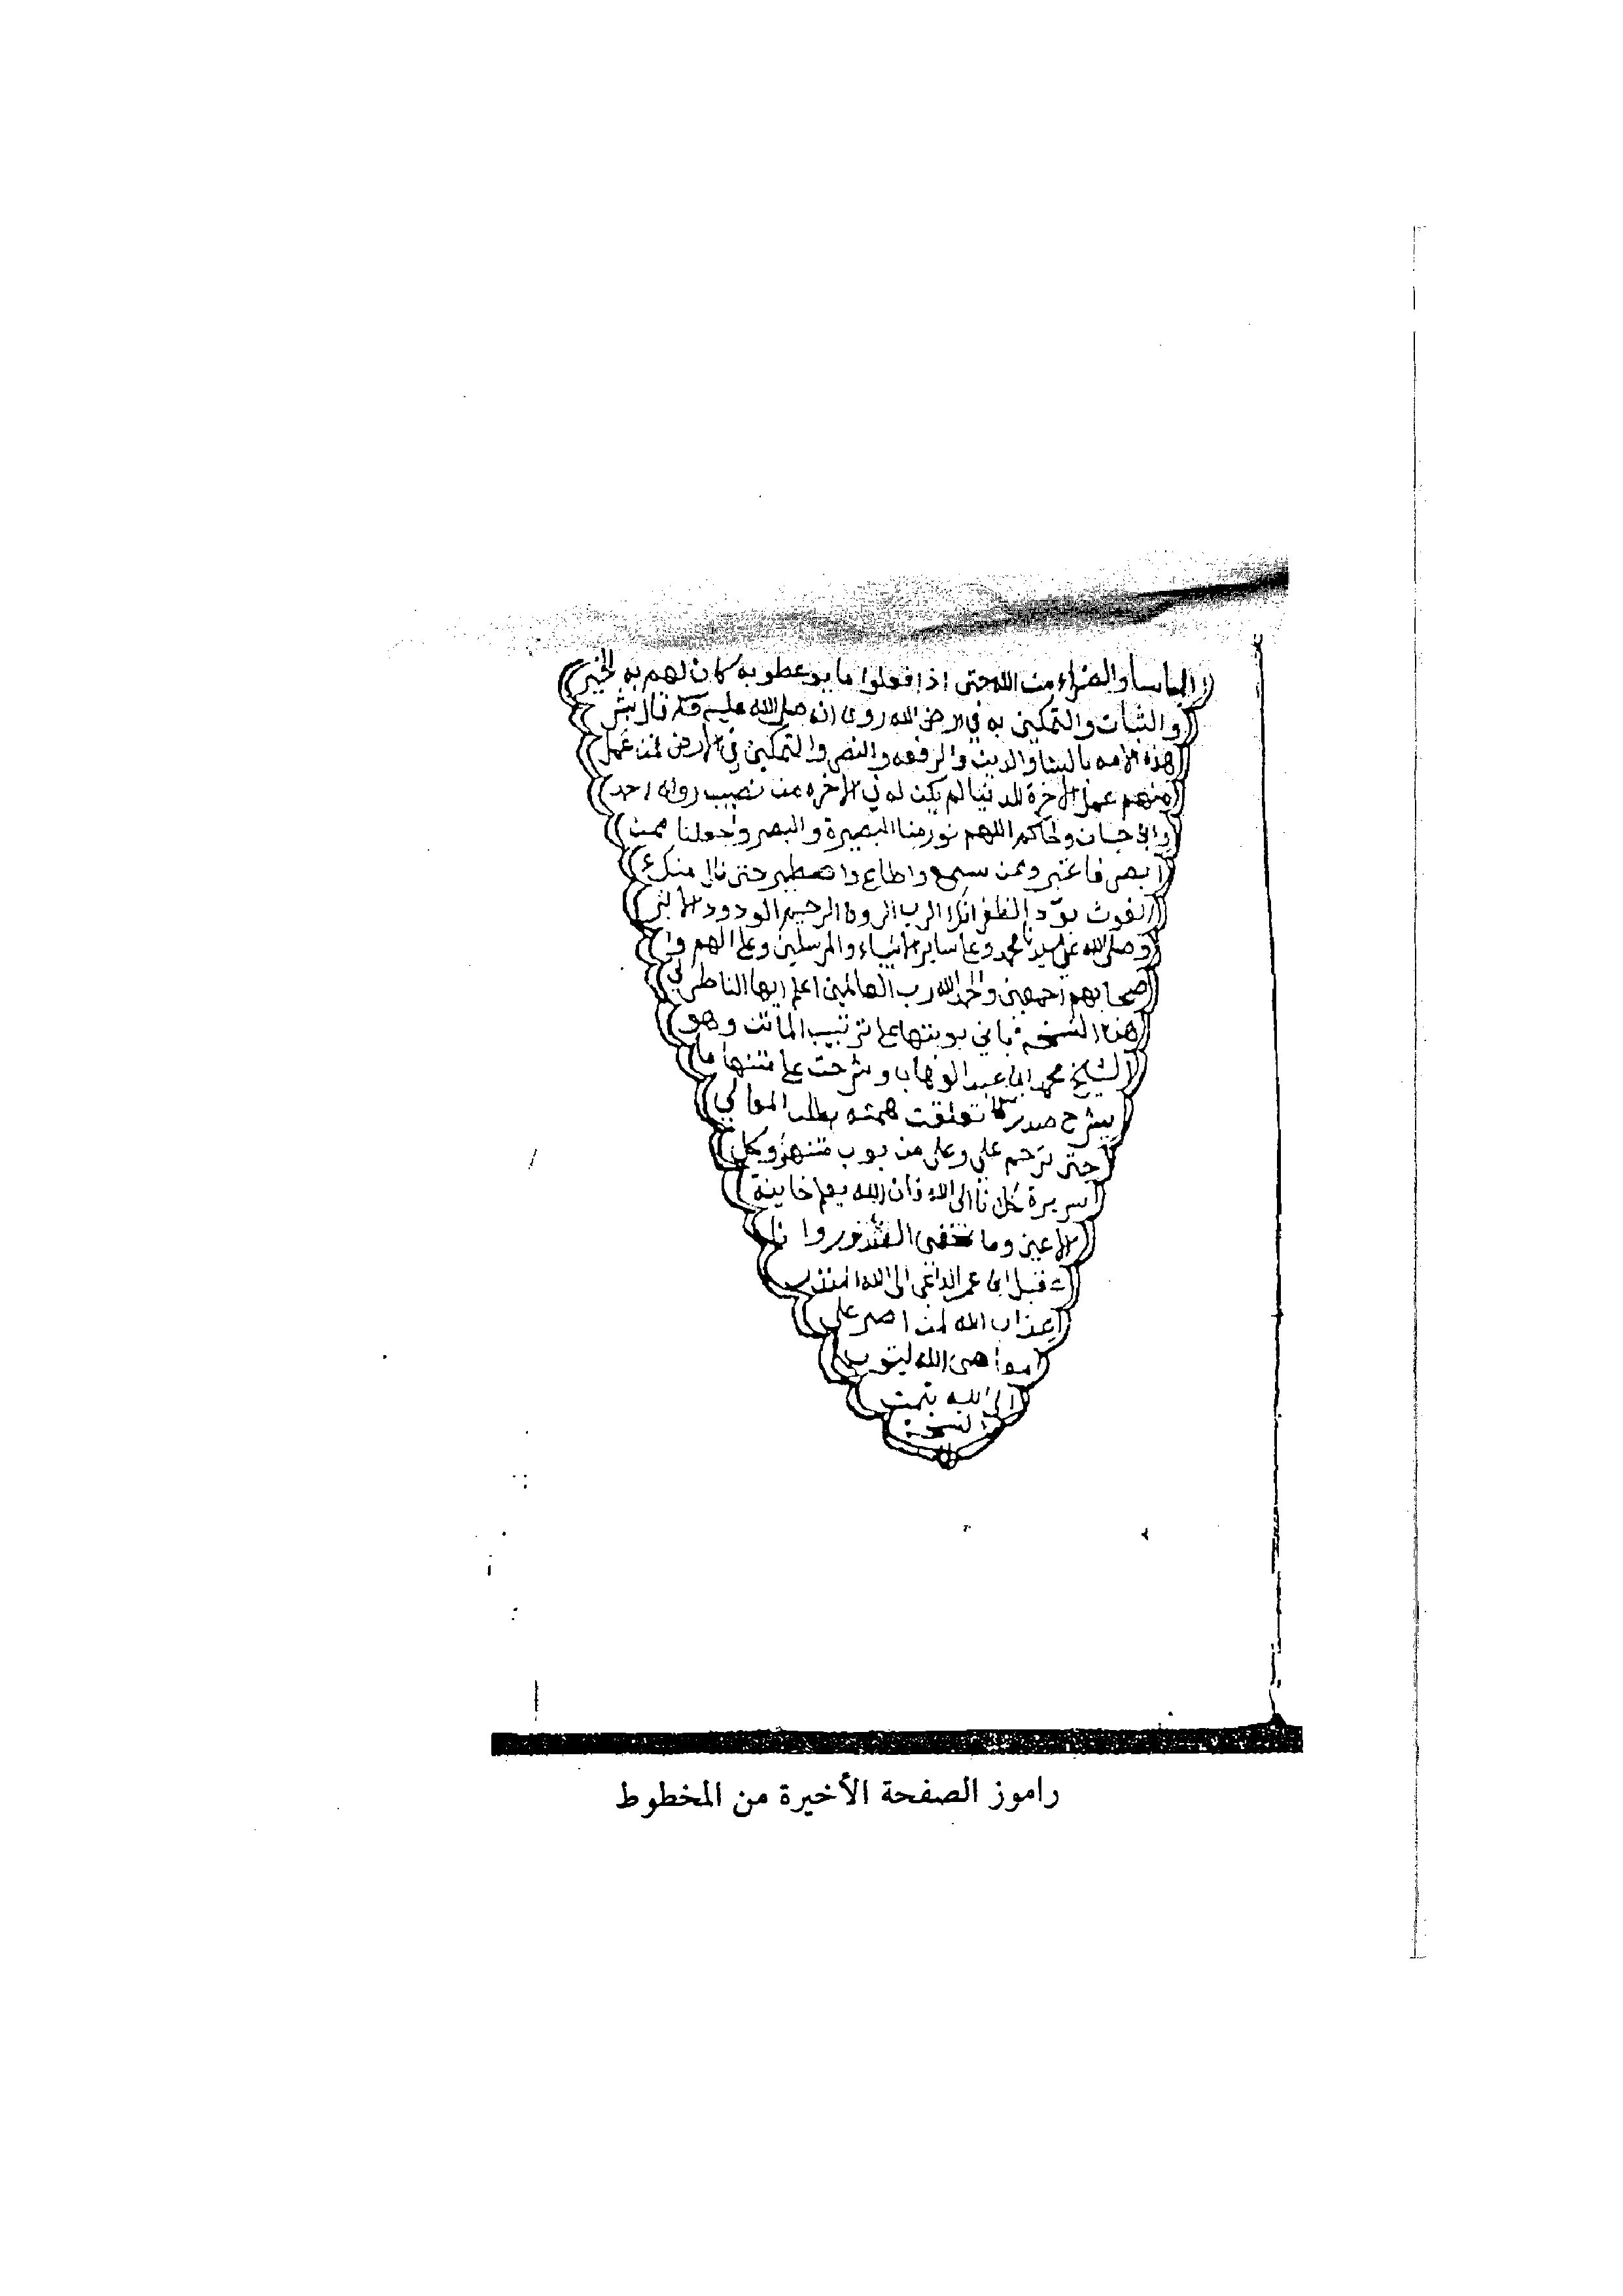 البأساء والضراء من الله حتى اذا فعلوا ما يوعظو به كان لهم به الخير
والثبات والتمكين به في الارض الله روي انه صلى الله عليه قال بشر
هذه الامه بالسنا والدين والرفعه والنصر والتمكين في الارض فمن عمل
منهم عمل الآخرة للدنيا لم يكن له في الاخره من نصيب رواه احد
وابن حبان والحاكم اللهم نور منا البصيرة والبصر واجعلنا ممن
ابصر فاعتبر وممن سمع واطاع واصطبر حتى نال منك
الرب الرؤف الرحيم الودود
وصلى الله على سيدنا محمد وعلى ساير الانبياء والمرسلين وعلى الهم وا
صحابهم اجمعين والحمد لله رب العالمين اعلم ايها الناظر في
هذه النسخه فاني بوبتها على ترتيب الماتن وهو
الشيخ محمد ابن عبد الوهاب وشرحت على متنها ما
يشرح صدر تعلقت همته بطلب المعالي
حتى ترحم علي وعلى من بوب متنها وكل
سريرة الى الله فان الله يعلم خاينة
الاعين وما تخفي الصدور
قبل ابن عمر الداعي الى الله المنذر
عذاب الله لمن اصر على
الله ليتوب
الى الله تمت
النسخة
راموز الصفحة الأخيرة من المخطوط